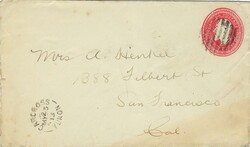 Mrs A. Henkel
1388 Filbert St
San Francisco
Cal